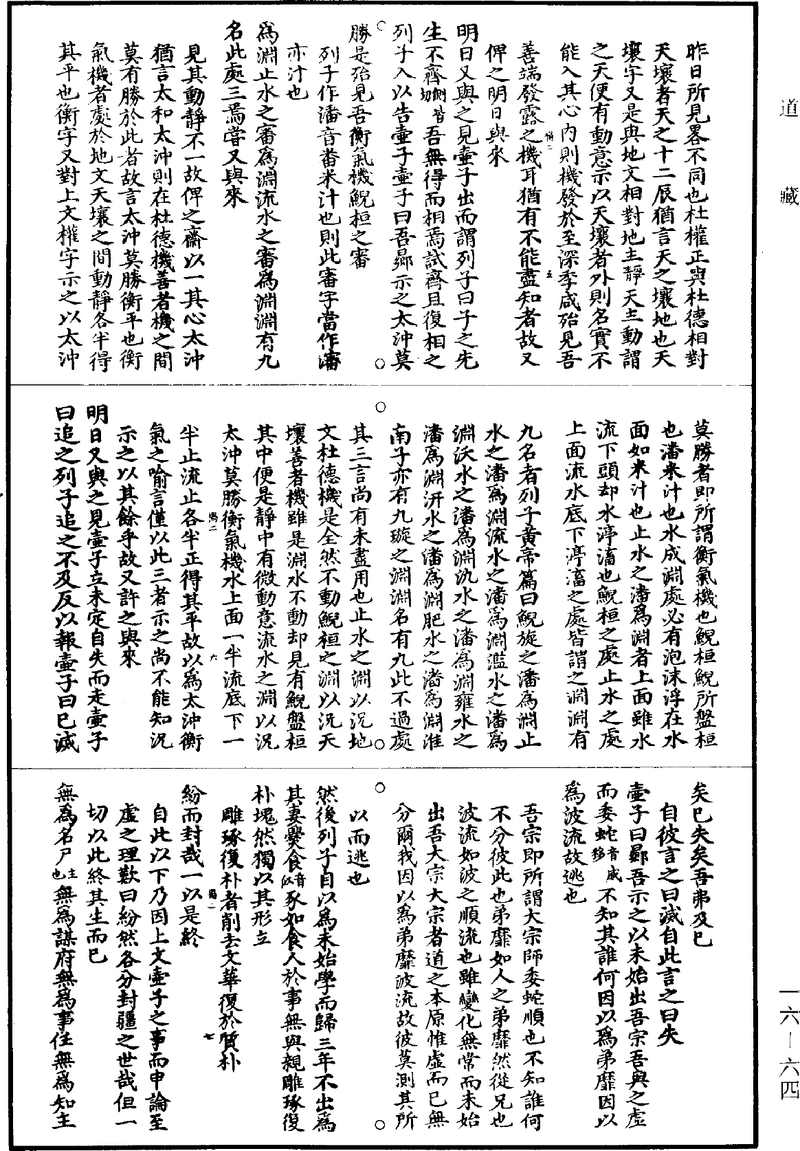 道藏
昨日所見畧不同也杜權正與杜德相對
天壤者天之十二辰猶言天之壤地也天
壤字又是與地文相對地主靜天主動謂
之天便有動意示以天壤者外則名實不
能入其心內則機發於至深季咸殆見吾
善端發露之機耳猶有不能盡知者故又
俾之明日與來
明日又與之見壺子出而謂列子曰子之先
生不齊吾無得而相焉試齊且復相之
列子入以告壺子壺子曰吾鄉示之太沖莫
勝是殆見吾衡氣機鯢桓之審
列子作潘音蕃米汁也則此審字當作瀋
亦汁也
為淵止水之審為淵流水之審為淵淵有九
名此處三焉嘗又與來
見其動靜不一故俾之齋以一其心太沖
猶言太和太沖則在杜德機善者機之間
莫有勝於此者故言太沖莫勝衡平也衡
氣機者處於地文天壤之間動靜各半得
其平也衡字又對上文權字示之以太沖
莫勝者即所謂衡氣機也鯢桓鯢所盤桓
也潘米汁也水成淵處必有泡沫浮在水
面如米汁也止水之潘為淵者上面雖水
流下頭却水渟滀也鯢桓之處止水之處
上面流水底下渟滀之處皆謂之淵淵有
九名者列子黃帝篇曰鯢旋之潘為淵止
水之潘為淵流水之潘為淵濫水之潘為
淵沃水之潘為淵氿水之潘為淵雍水之
潘為淵汧水之潘為淵肥水之潘為淵淮
南子亦有九璇之淵淵名有九此不過處
其三言尚有未盡用也止水之淵以況地
文杜德機是全然不動鯢桓之淵以況天
壤善者機雖是淵水不動却見有鯢盤桓
其中便是靜中有微動意流水之淵以況
太沖莫勝衡氣機水上面一半流底下一
半止流止各半正得其平故以為太沖衡
氣之喻言僅以此三者示之尚不能知況
示之以其餘乎故又許之與來
明日又與之見壺子立未定自失而走壺子
曰追之列子追之不及反以報壺子曰已滅
矣已失矣吾弗及已
自彼言之曰滅自此言之曰失
壺子曰鄉吾示之以未始出吾宗吾與之虛
而委蛇音威移不知其誰何因以為弟靡因以
為波流故逃也
吾宗即所謂大宗師委蛇順也不知誰何
不分彼此也弟靡如人之弟靡然從兄也
波流如波之順流也雖變化無常而未始
出吾大宗大宗者道之本原惟虛而已無
分爾我因以為弟靡波流故彼莫測其所
以而逃也
然後列子自以為未始學而歸三年不出為
其妻爨食音似豕如食人於事無與親雕琢復
朴塊然獨以其形立
雕琢復朴者削去文華復於質朴
紛而封哉一以是終
自此以下乃因上文壺子之事而申論至
虛之理歎曰紛然各分封疆之世哉但一
切以此終其生而已
無為名尸主也無為謀府無為事任無為知主
一六—六四